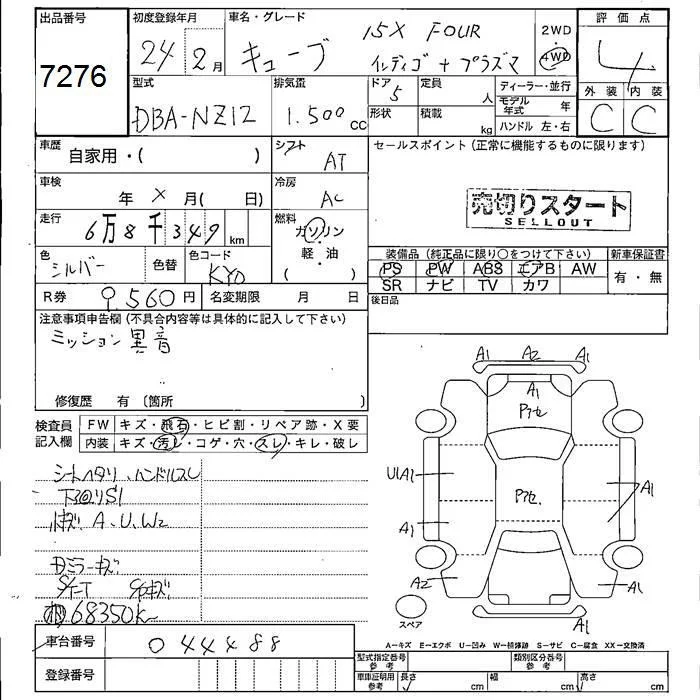 出品番号
7276
初度登録年月
24年2月
車名・グレード
キューブ 15X FOUR
インディゴ + プラズマ
2WD
4WD
評価点
4
外装 内装
C C
型式
DBA-NZ12
排気量
1.500cc
ドア
5
形状
定員
人
積載
kg
ディーラー・並行
モデル年式 年
ハンドル 左・右
車歴
自家用・( )
シフト
AT
車検
年 × 月( 日)
冷房
AC
走行
6万8千349km
燃料
ガソリン
軽・油
色
シルバー
色替
色コード
KY0
R券 9,560円
名変期限 月 日
セールスポイント(正常に機能するものに限ります)
売切りスタート
SELLOUT
装備品(純正品に限り○をつけて下さい)
PS PW ABS エアB AW
SR ナビ TV カワ
新車保証書
有・無
後日品
注意事項申告欄(不具合内容等は具体的に記入して下さい)
ミッション異音
修復歴 有(箇所
検査員記入欄
FW キズ・飛石・ヒビ割・リペア跡・X要
内装 キズ・汚レ・コゲ・穴・スレ・キレ・破レ
シートヘタリ、ハンドルスレ
A、U、W2
ミラーキズ
68350K
A1 A2 A1
A1
Pアセ
U1A1
Pアセ
A1
A1
A2
A1
スペア
A−キズ E−エクボ U−凹み W−補修跡 S−サビ C−腐食 XX−交換済
車台番号 044488
登録番号
型式指定番号 参考
類別区分番号 参考
車庫証明用 参考
長さ cm
幅 cm
高さ cm